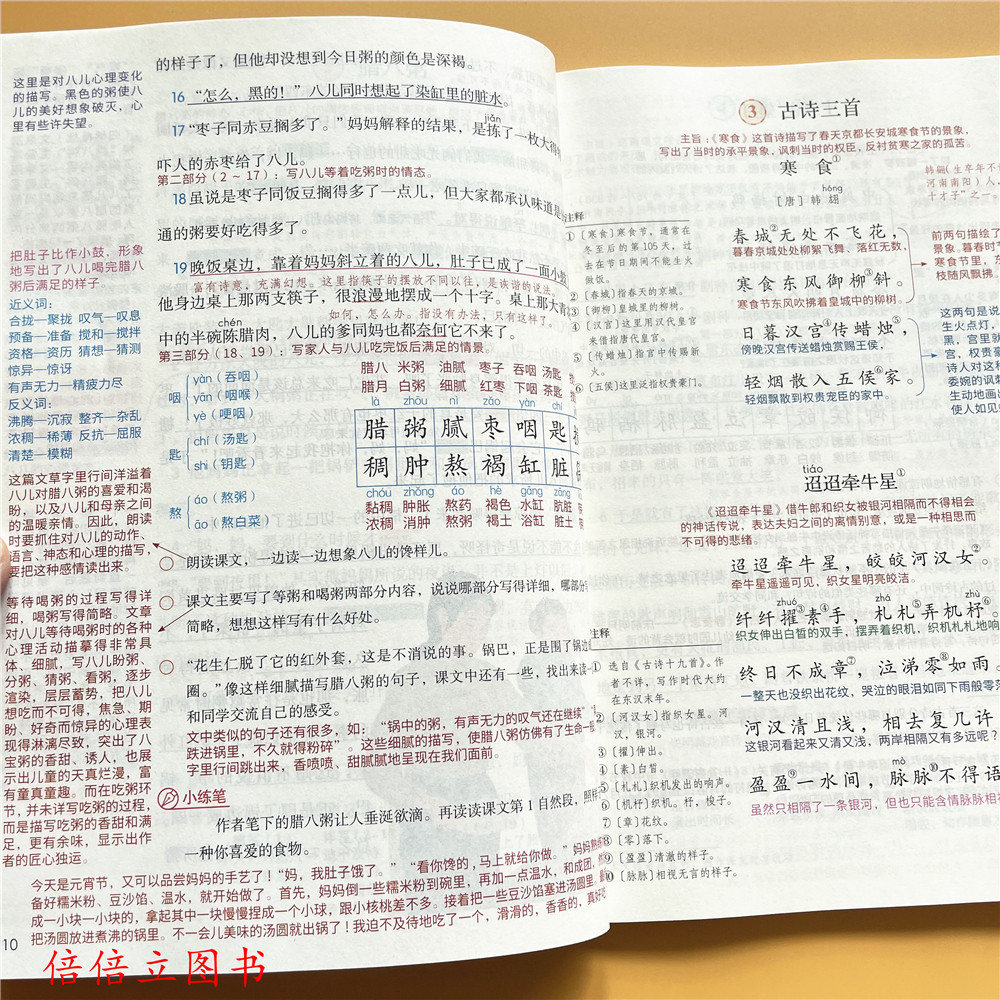 的样子了，但他却没想到今日粥的颜色是深褐。
16 “怎么，黑的！”八儿同时想起了染缸里的脏水。
jiǎn
17 “枣子同赤豆搁多了。”妈妈解释的结果，是拣了一枚大得
吓人的赤枣给了八儿。
第二部分（2～17）：写八儿等着吃粥时的情态。
18 虽说是枣子同饭豆搁得多了一点儿，但大家都承认味道是
通的粥要好吃得多了。
19 晚饭桌边，靠着妈妈斜立着的八儿，肚子已成了一面小鼓
富有诗意，充满幻想。这里指筷子的摆放不同以往，是诙谐的说法。
他身边桌上那两支筷子，很浪漫地摆成一个十字。桌上那大青
如何，怎么办。指没有办法，只有这样了。
chén
中的半碗陈腊肉，八儿的爹同妈也都奈何它不来了。
第三部分（18、19）：写家人与八儿吃完饭后满足的情景。
这里是对八儿心理变化
的描写。黑色的粥使八
儿的美好想象破灭，心
里有些许失望。
把肚子比作小鼓，形象
地写出了八儿喝完腊八
粥后满足的样子。
近义词：
合拢—聚拢 叹气—叹息
预备—准备 搅和—搅拌
资格—资历 猜想—猜测
惊异—惊讶
有声无力—精疲力尽
反义词：
沸腾—沉寂 整齐—杂乱
浓稠—稀薄 反抗—屈服
清楚—模糊
这篇文章字里行间洋溢着
八儿对腊八粥的喜爱和渴
盼，以及八儿和母亲之间
的温暖亲情。因此，朗读
时要抓住对八儿的动作、
语言、神态和心理的描写，
要把这种感情读出来。
等待喝粥的过程写得详
细，喝粥写得简略。文章
对八儿等待喝粥时的各种
心理活动描摹得非常具
体、细腻，写八儿盼粥、
分粥、猜粥、看粥，逐步
渲染，层层蓄势，把八儿
想吃而不可得，焦急、期
盼、好奇而惊异的心理表
现得淋漓尽致，突出了八
宝粥的香甜、诱人，也展
示出儿童的天真烂漫，富
有童真童趣。而在吃粥环
节，并未详写吃粥的过程，
而是描写吃粥的香甜和满
足，更有余味，显示出作
者的匠心独运。
咽
yàn（吞咽）
yān（咽喉）
yè（哽咽）
匙
chí（汤匙）
shi（钥匙）
熬
áo（熬粥）
āo（熬白菜）
腊八 米粥 油腻 枣子 吞咽 汤匙
腊月 白粥 细腻 红枣 下咽 茶匙
là zhōu nì zǎo yàn chí
腊 粥 腻 枣 咽 匙
稠 肿 熬 褐 缸 脏
chóu zhǒng áo hè gāng zāng
黏稠 肿胀 熬药 褐色 水缸 肮脏
浓稠 消肿 熬粥 褐土 浴缸 脏土
朗读课文，一边读一边想象八儿的馋样儿。
课文主要写了等粥和喝粥两部分内容，说说哪部分写得详细，哪部分
简略，想想这样写有什么好处。
“花生仁脱了它的红外套，这是不消说的事。锅巴，正是围了锅边
圈。”像这样细腻描写腊八粥的句子，课文中还有一些，找出来读一
和同学交流自己的感受。
文中类似的句子还有很多，如：“锅中的粥，有声无力的叹气还在继续”
跌进锅里，不久就得粉碎”。这些细腻的描写，使腊八粥仿佛有了生命一
字里行间跳出来，香喷喷、甜腻腻地呈现在我们面前。
小练笔
作者笔下的腊八粥让人垂涎欲滴。再读读课文第1自然段，照样
一种你喜爱的食物。
今天是元宵节，又可以品尝妈妈的手艺了！“妈，我肚子饿了。”“看你馋的，马上就给你做。”妈妈熟练
备好糯米粉、豆沙馅、温水，就开始做了。首先，妈妈倒一些糯米粉到碗里，再加一点温水，和成团，
成一小块一小块的，拿起其中一块慢慢捏成一个小球，跟小核桃差不多。接着把一些豆沙馅塞进汤圆里，
把汤圆放进煮沸的锅里。不一会儿美味的汤圆就出锅了！我迫不及待地吃了一个，滑滑的，香香的，真好吃
10
倍倍立图书
3 古诗三首
主旨：《寒食》这首诗描写了春天京都长安城寒食节的景象，
写出了当时的承平景象，讽刺当时的权臣，反衬贫寒之家的孤苦。
寒食①
hóng
［唐］韩翃
韩翃（生卒年不
河南南阳）人，
十才子”之一
春城②无处不飞花，
暮春京城处处柳絮飞舞、落红无数，
寒食东风御柳③斜。
寒食节东风吹拂着皇城中的柳树。
日暮汉宫④传蜡烛⑤，
傍晚汉宫传送蜡烛赏赐王侯，
轻烟散入五侯⑥家。
轻烟飘散到权贵宠臣的家中。
前两句描绘了
景象。暮春时节
寒食节里，东
枝随风飘拂。
这两句是说
生火点灯，
黑，宫里就
宫，权贵豪
诗人对这种
委婉的讽刺
生动地画出
使人如见如
注释
①［寒食］寒食节，通常在
冬至后的第105天，过
去在节日期间不能生火
做饭。
②［春城］指春天的京城。
③［御柳］皇城里的柳树。
④［汉宫］这里用汉代皇宫
来借指唐代皇宫。
⑤［传蜡烛］指宫中传赐新
火。
⑥［五侯］这里泛指权贵豪门。
tiáo
迢迢牵牛星①
《迢迢牵牛星》借牛郎和织女被银河相隔而不得相会
的神话传说，表达夫妇之间的离情别意，或是一种相思而
不可得的悲绪。
迢迢牵牛星，皎皎河汉女②。
牵牛星遥遥可见，织女星明亮皎洁。
zhuó zhá zhù
纤纤擢③素④手，札札⑤弄机杼⑥。
织女伸出白皙的双手，摆弄着织机，织机札札地响
终日不成章⑦，泣涕零⑧如雨。
一整天也没织出花纹，哭泣的眼泪如同下雨般零落
河汉清且浅，相去复几许
这银河看起来又清又浅，两岸相隔又有多远呢？
mò
盈盈⑨一水间，脉脉⑩不得语
虽然只相隔了一条银河，但也只能含情脉脉相视
注释
① 选自《古诗十九首》。作
者不详，写作时代大约
在东汉末年。
②［河汉女］指织女星。河
汉，银河。
③［擢］伸出。
④［素］白皙。
⑤［札札］织机发出的响声。
⑥［机杼］织机。杼，梭子。
⑦［章］花纹。
⑧［零］落下。
⑨［盈盈］清澈的样子。
⑩［脉脉］相视无言的样子。